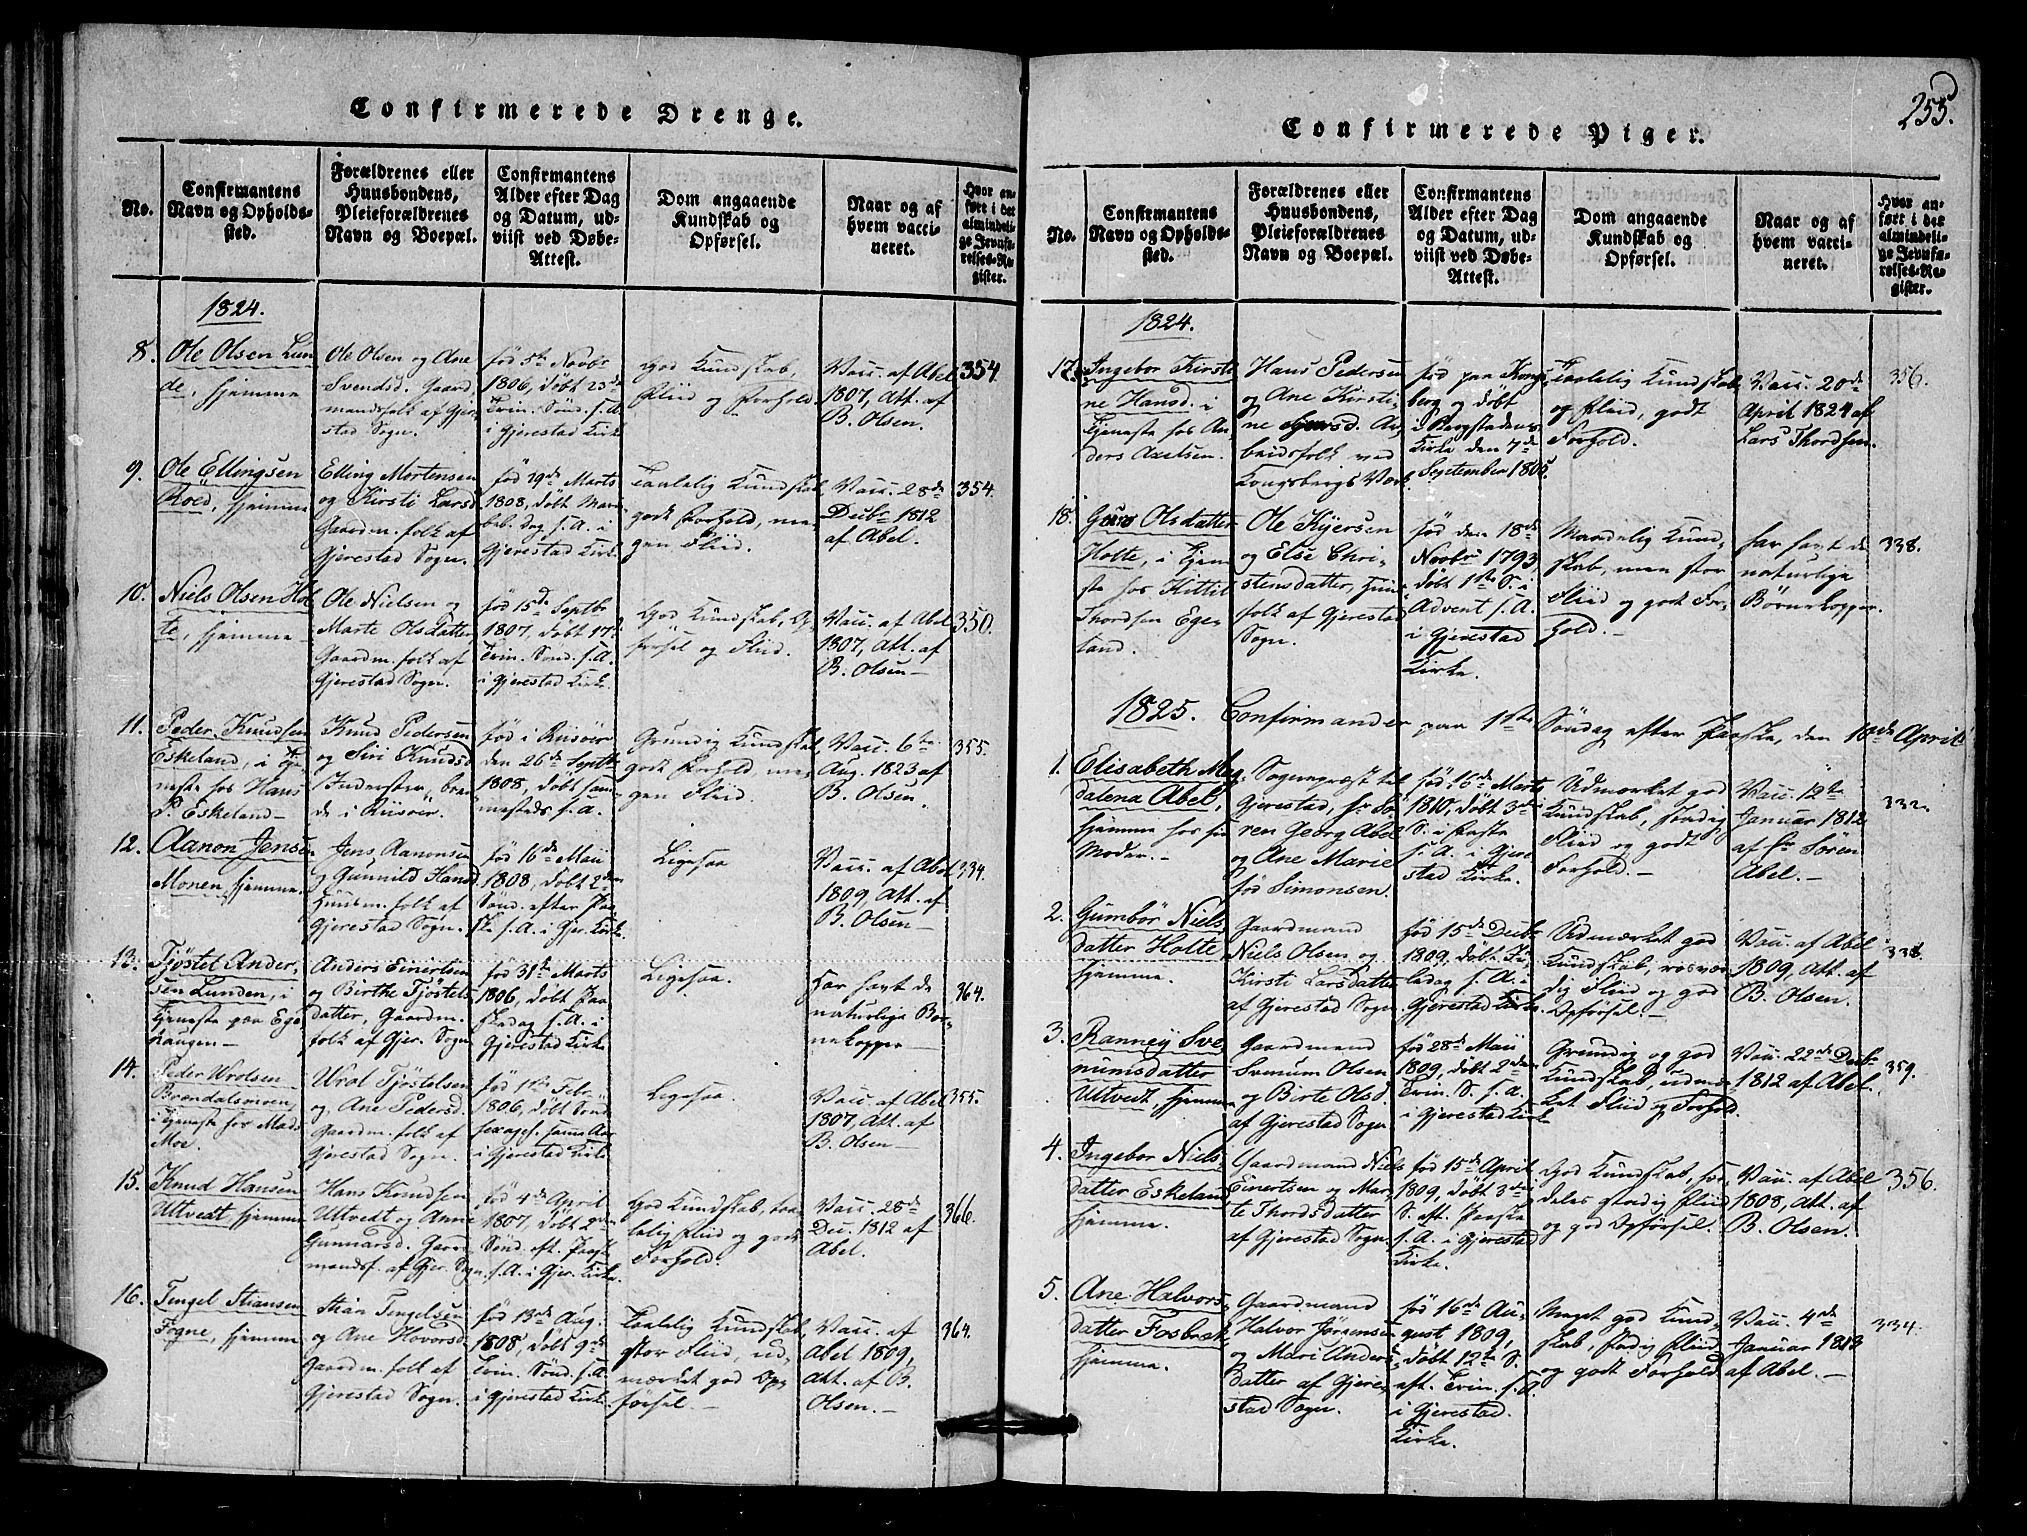 Confirmerede Drenge.
No.
Confirmantens
Navn og Opholds-
sted.
Forældrenes eller
Huusbondens,
Pleieforældrenes
Navn og Boepæl.
Confirmantens
Alder efter Dag
og Datum, ud-
viist ved Døbe-
Attest.
Dom angaaende
Kundskab og
Opførsel.
Naar og af
hvem vacci-
neret.
Hvor an-
ført i det
almindeli-
ge Jevnfø-
relses-Re-
gister.
1824.
8.
Ole Olsen Lun
de, hjemme
Ole Olsen og Ane
Svendsd. Gaard
mandsfolk af Gjer
stad Sogn.
fød 5te Novbr
1806, døbt 23de
Trin. Sønd. s. A.
i Gjerestad Kirke
God Kundskab,
Fliid og Forhold.
Vacc. af Abel
1807, Att. af
B. Olsen.
354.
9.
Ole Ellingsen
Röed, hjemme
Elling Mortensen
og Kirsti Larsd
Gaardm. folk af
Gjerestad Sogn.
fød 19de Marts
1808, døbt Mari
beb. Dag s. A. i
Gjerestad Kirke
Taalelig Kundskab
godt Forhold, me-
gen Fliid.
Vacc. 28de
Decbr 1812
af Abel.
354.
10.
Niels Olsen Hol
te, hjemme
Ole Nielsen og
Marte Olsdatter
Gaardm. folk af
Gjerestad Sogn.
fød 15de Septbr
1807, døbt 17de
Trin. Sønd. s. A.
i Gjerestad Kirke.
God Kundskab, Op-
førsel og Fliid.
Vacc. af Abel
1807, Att. af
B. Olsen
350.
11.
Peder Knudsen
Eskeland, i Tje
neste hos Hans
P. Eskeland
Knud Pedersen
og Siri Knudsd
Inderster, boen
de i Riisöer.
fød i Riisöer
den 26de Septbr
1808, døbt sam-
mesteds s. A.
Grundig Kundskab
godt Forhold, me-
gen Fliid.
Vacc. 6te
Aug. 1823 af
B. Olsen.
355.
12.
Aanon Jensen
Monen, hjemme
Jens Aanonsen
og Gunnild Hansd
Huusm. folk af
Gjerestad Sogn.
fød 16de Maii
1808, døbt 2den
Sønd. efter Paa
ske s. A. i Gjer. Kirke.
Ligesaa
Vacc. af Abel
1809, Att. af
B. Olsen
334.
13.
Tjöstel Ander,
sen Lunden, i
Tjeneste paa Ege
haugen
Anders Einertsen
og Birthe Tjöstels
datter, Gaardm.
folk af Gjer. Sogn
fød 31te Marts
1806, døbt Paa
skedag s. A. i
Gjerestad Kirke
Ligesaa.
Har havt de
naturlige Bør-
nekopper
364.
14.
Peder Wrolsen
Brøndalsmoen,
i Tjeneste hos Mads
Moe.
Wrol Tjöstelsen
og Ane Pedersd.
Gaardm. folk af
Gjerestad Sogn.
fød 1te Febr.
1806, døbt Sønd
sexages. samme Aar
i Gjerestad Kirke
Ligesaa.
Vacc. af Abel
1807, Att. af
B. Olsen
355.
15.
Knud Hansen
Ultvedt hjemme
Hans Knudsen
Ultvedt og Anne
Gunnarsd. Gaard
mandsf. af Gjer. Sogn
fød 4de April
1807, døbt 2den
Sønd. eft. Paaske
s. A. i Gjer. Kirke.
God Kundskab, taa
lelig Fliid og godt
Forhold.
Vacc. 28de
Dec. 1812 af
Abel.
366.
16.
Tengel Stiansen
Fogne, hjemme
Stian Tengelsen
og Ane Hovorsd.
Gaardm. folk af
Gjerestad Sogn.
fød 13de Aug.
1808, døbt 9de
Trin. Sønd. s. A.
i Gjerestad Kirke.
Taalelig Kundskab,
stor Fliid, ud,
mærket god Op,
førsel.
Vacc. af
Abel 1809,
Att. af B.
Olsen.
364.
255.
Confirmerede Piger.
No.
Confirmantens
Navn og Opholds-
sted.
Forældrenes eller
Huusbondens,
Pleieforældrenes
Navn og Boepæl.
Confirmantens
Alder efter Dag
og Datum, ud-
viist ved Døbe-
Attest.
Dom angaaende
Kundskab og
Opførsel.
Naar og af
hvem vacci-
neret.
Hvor an-
ført i det
almindeli-
ge Jevnfø-
relses-Re-
gister.
1824.
17.
Ingebor Kirsti
ne Hansd. i
Tjeneste hos An
ders Axelsen.
Hans Pedersen
og Ane Kirsti-
ne Ar
beidsfolk ved
Kongsbergs Værk.
fød paa Kongs,
berg og døbt
i Bergstadens
Kirke den 7de
September 1805.
Taalelig Kundskab
og Fliid, godt
Forhold.
Vacc. 20de
April 1824 af
Lars Thordsen.
356.
18.
Guro Olsdatter
Holte, i Tjene
ste hos Kittil
Thordsen Ege-
land.
Ole Kjersen
og Else Chri-
stensdatter, Huus
folk af Gjerestad
Sogn.
fød den 18de
Novbr 1793,
døbt 1ste S. i
Advent s. A.
i Gjerestad
Kirke.
Maadelig Kund,
skab, men stor
Fliid og godt For-
hold.
har havt de
naturlige
Børnekopper.
338.
1825. Confirmander paa 1ste Søndag efter Paaske, den 10de April
1.
Elisabeth Mag
dalena Abel,
hjemme hos sin
Moder.
Sognepræst til
Gjerestad, Hr Sö-
ren Georg Abel
og Ane Marie
fød Simonsen.
fød 16de Marts
1810, døbt 3de
S. i Faste
s. A. i Gjere
stad Kirke.
Udmærket god
Kundskab, stadig
Fliid og godt
Forhold.
Vacc. 12te
Januar 1812
af Hr Søren
Abel.
332.
2.
Gumbör Niels
datter Holte,
hjemme.
Gaardmand
Niels Olsen og
Kirsti Larsdatter
af Gjerestad Sogn
fød 15de Decbr
1809, døbt Ju,
ledag s. A. i
Gjerestad Kirke.
Udmærket god
Kundskab, rosvær
dig Fliid og god
Opførsel.
Vacc. af Abel
1809, Att. af
B. Olsen.
338.
3.
Ranney Sve
numsdatter
Ultvedt, hjemme
Gaardmand
Svenum Olsen
og Birte Olsd.
af Gjerestad Sogn
fød 28de Maii
1809, døbt 2den
Trin. S. s. A.
i Gjerestad Kirke
Grundig og god
Kundskab, udmær
ket Fliid og Forhold.
Vacc. 22de Decbr
1812 af Abel.
359.
4.
Ingebor Niels
datter Eskeland
hjemme.
Gaardmand Niels
Einertsen og Mar
te Thordsdatter
af Gjerestad Sogn.
fød 15de April
1809, døbt 3die
S. eft. Paaske
s. A. i Gjerestad
Kirke.
God Kundskab, sær
deles stadig Fliid
og god Opførsel.
Vacc. af Abel
1808, Att. af
B. Olsen.
356.
5.
Ane Halvors,
datter Fosbræk
hjemme.
Gaardmand
Halvor Jørgensen
og Mari Anders
datter af Gjere,
stad Sogn.
fød 16de Au-
gust 1809,
døbt 12te S.
eft. Trin. s. A.
i Gjerestad
Kirke.
Meget god Kund,
skab, stadig Fliid
og godt Forhold
Vacc. 4de
Januar 1813
af Abel.
334.